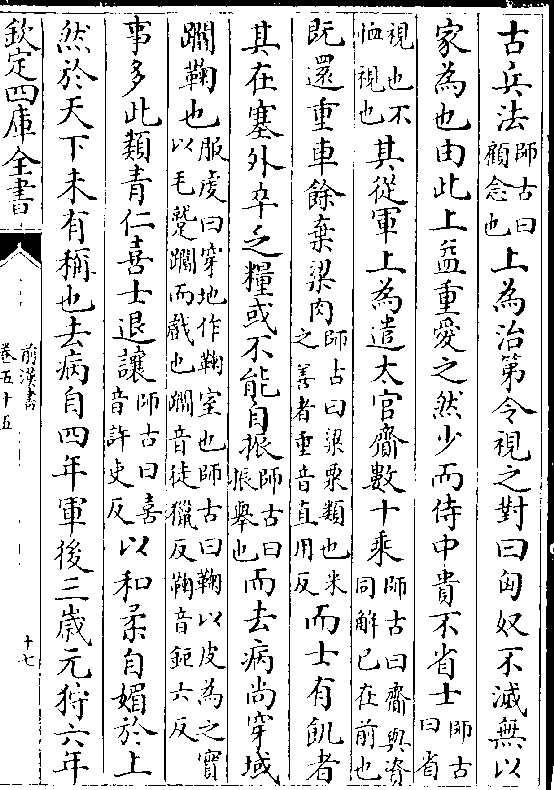 古兵法師古曰顧念也上為治第令視之對曰匈奴不滅無以
家為也由此上益重愛之然少而侍中貴不省士師古曰省
視也不恤視也其從軍上為遣太官齎數十乘師古曰齎與資同解已在前也
既還重車餘棄粱肉師古曰粱粟類也米之善者重音直用反而士有飢者
其在塞外卒乏糧或不能自振師古曰振舉也而去病尚穿域
躢鞠也服虔曰穿地作鞠室也師古曰鞠以皮為之實以毛蹵躢而戲也躢音徒獵反鞠音鉅六反
事多此類青仁喜士退讓師古曰喜音許吏反以和柔自媚於上
然於天下未有稱也去病自四年軍後三歲元狩六年
欽定四庫全書
前漢書
卷五十五
十七